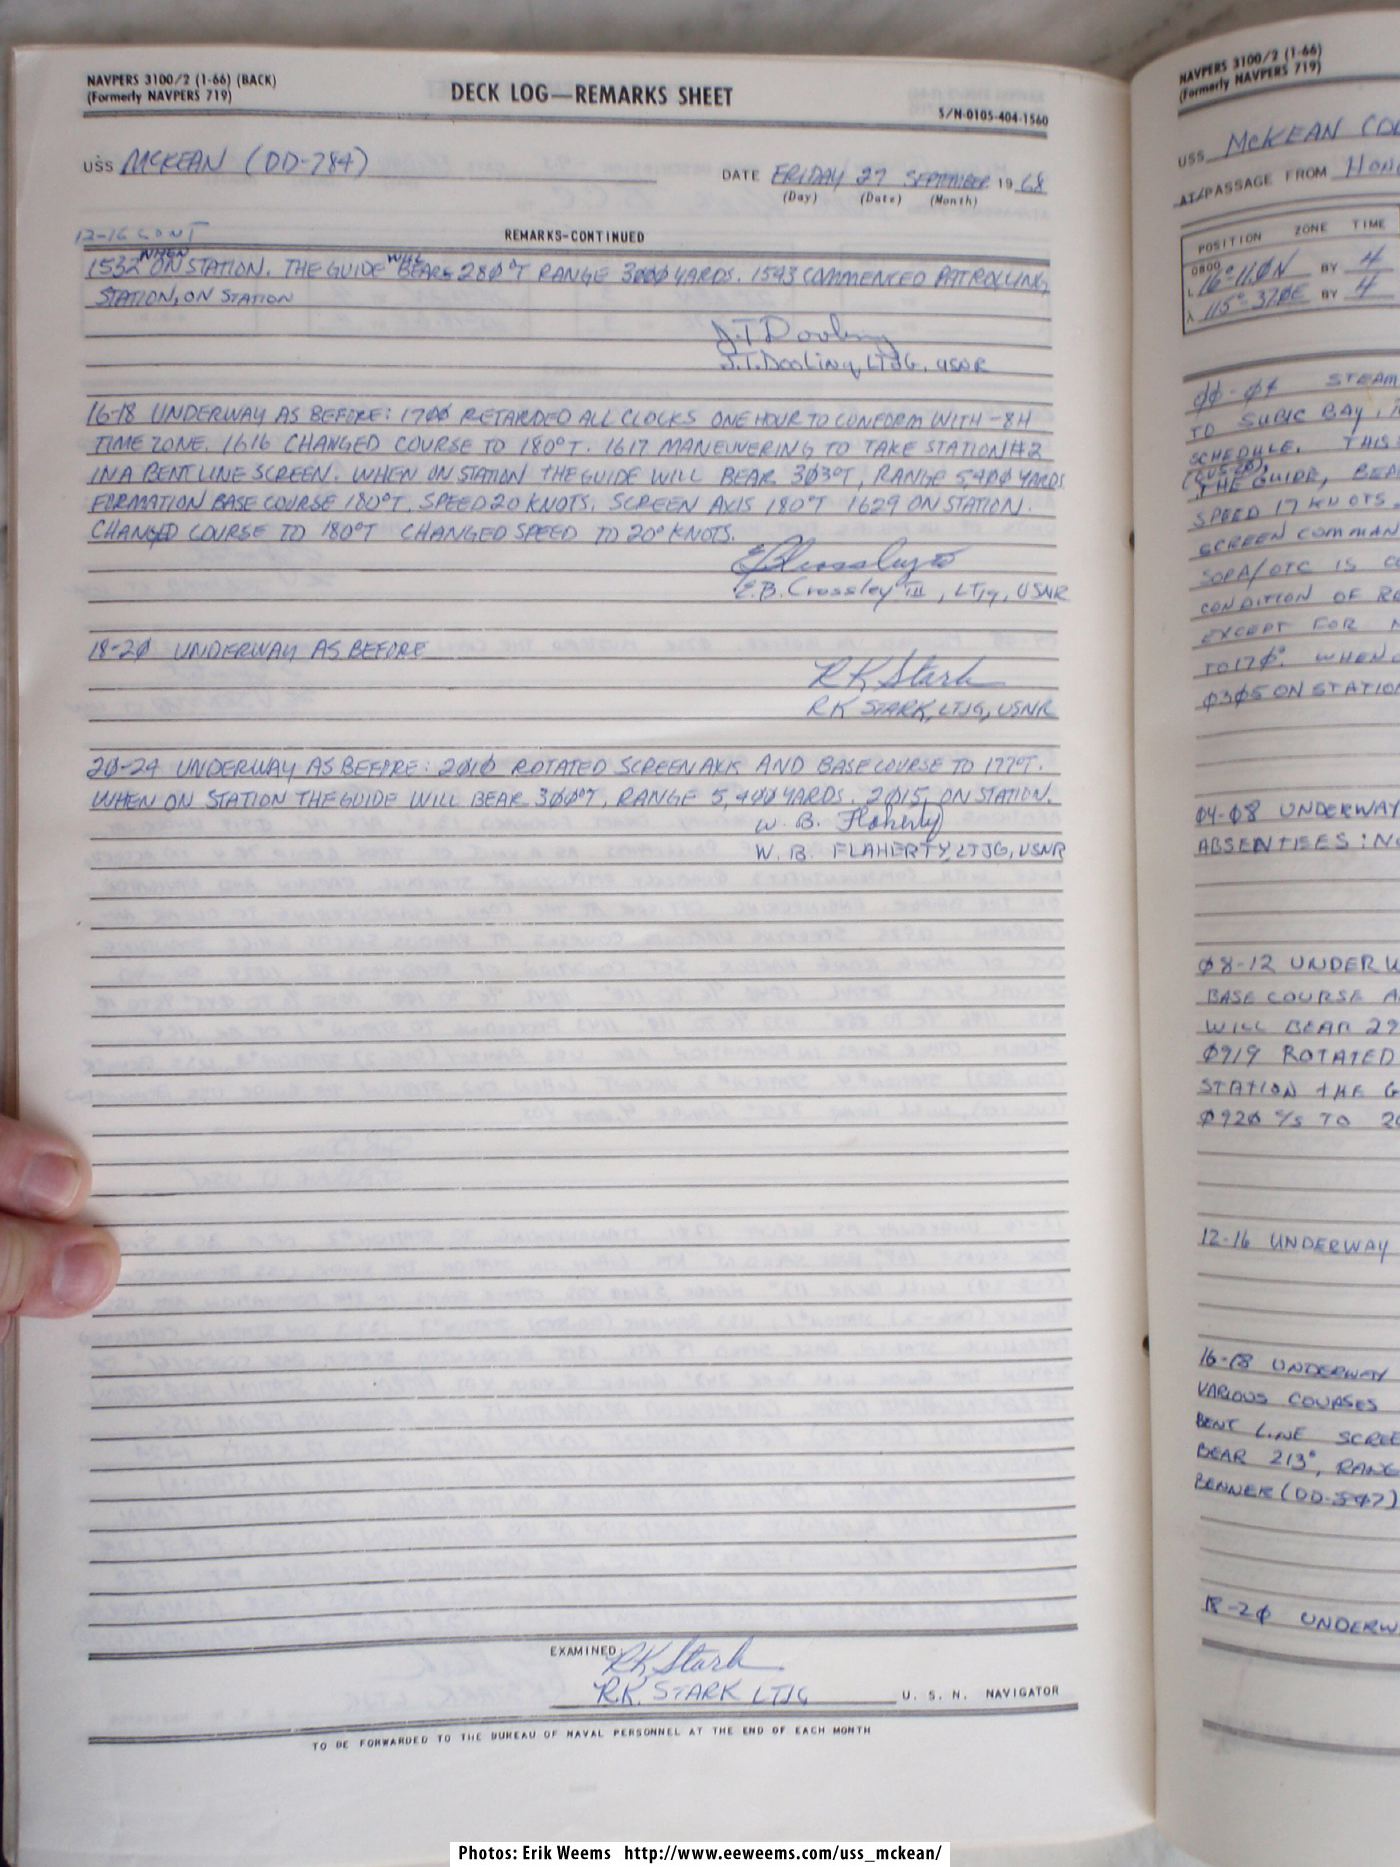 NAVPERS 3100/2 (1-66) (BACK)
(Formerly NAVPERS 719)
DECK LOG—REMARKS SHEET
S/N-0105-404-1560
USS MCKEAN (DD-784)
DATE FRIDAY 27 SEPTEMBER 19 68
(Day) (Date) (Month)
12-16 CONT
REMARKS-CONTINUED
1532 WHEN ON STATION. THE GUIDE WILL BEAR 280°T RANGE 3000 YARDS. 1543 COMMENCED PATROLLING
STATION, ON STATION
J.T. Dooling
J.T. Dooling, LTJG, USNR
16-18 UNDERWAY AS BEFORE: 1700 RETARDED ALL CLOCKS ONE HOUR TO CONFORM WITH -8H
TIME ZONE. 1616 CHANGED COURSE TO 180°T. 1617 MANEUVERING TO TAKE STATION #2
IN A BENT LINE SCREEN. WHEN ON STATION THE GUIDE WILL BEAR 303°T, RANGE 5,400 YARDS
FORMATION BASE COURSE 180°T. SPEED 20 KNOTS. SCREEN AXIS 180°T 1629 ON STATION.
CHANGED COURSE TO 180°T CHANGED SPEED TO 20 KNOTS.
E B Crossley III
E.B. Crossley III, LTjg, USNR
18-20 UNDERWAY AS BEFORE
RK Stark
RK STARK, LTJG, USNR
20-24 UNDERWAY AS BEFORE: 2010 ROTATED SCREEN AXIS AND BASE COURSE TO 177°T.
WHEN ON STATION THE GUIDE WILL BEAR 300°T, RANGE 5,400 YARDS. 2015, ON STATION.
W. B. Flaherty
W. B. FLAHERTY, LTJG, USNR
EXAMINED:
RK Stark
R.K. STARK LTJG U. S. N. NAVIGATOR
TO BE FORWARDED TO THE BUREAU OF NAVAL PERSONNEL AT THE END OF EACH MONTH
NAVPERS 3100/2 (1-66)
(Formerly NAVPERS 719)
USS MCKEAN
AT/PASSAGE FROM
POSITION ZONE TIME
0800
L 16°-11.0N BY 4
λ 115°-37.0E BY 4
00-04 STEAM
TO SUBIC BAY,
SCHEDULE. THIS
THE GUIDE,
SPEED 17 KNOTS
SCREEN COMMAN
SOPA/OTC IS
CONDITION OF
EXCEPT FOR
TO 170°. WHEN
0305 ON STATION
04-08 UNDERWAY
ABSENTEES:
08-12 UNDERW
BASE COURSE
WILL BEAR 29
0919 ROTATED
STATION THE G
0920 C/S TO 20
12-16 UNDERWAY
16-18 UNDERWAY
VARIOUS COURSES
BENT LINE SCREE
BEAR 213°, RANG
BENNER (DD-807)
18-20 UNDERW
Photos: Erik Weems http://www.eeweems.com/uss_mckean/